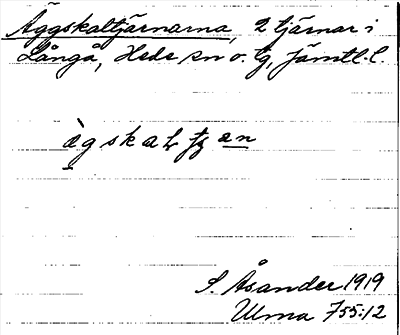 Äggskaltjärnarna, 2 tjärnar i
Långå, Hede sn o. tg, Jämtl. l.
ä̀gskaltj an
S. Åsander 1919
Ulma 755:12